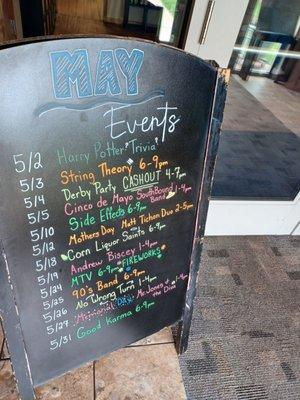 MAY
Events
5/2 Harry Potter Trivia
5/3 String Theory 6-9pm
5/4 Derby Party CASHOUT 4-7pm
5/5 Cinco de Mayo SouthBound Band 1-4pm
5/10 Side Effects 6-9pm
5/12 Mothers Day Matt Tichon Duo 2-5pm
5/18 Corn Liquor Saints 6-9pm
5/19 Andrew Biscey 1-4pm
5/24 MTV 6-9pm FIREWORKS
5/25 90's Band 6-9pm
5/26 No Wrong Turn 1-4pm
5/27 Memorial DAY Mr. Jones & the Dime 1-4pm
5/31 Good Karma 6-9pm